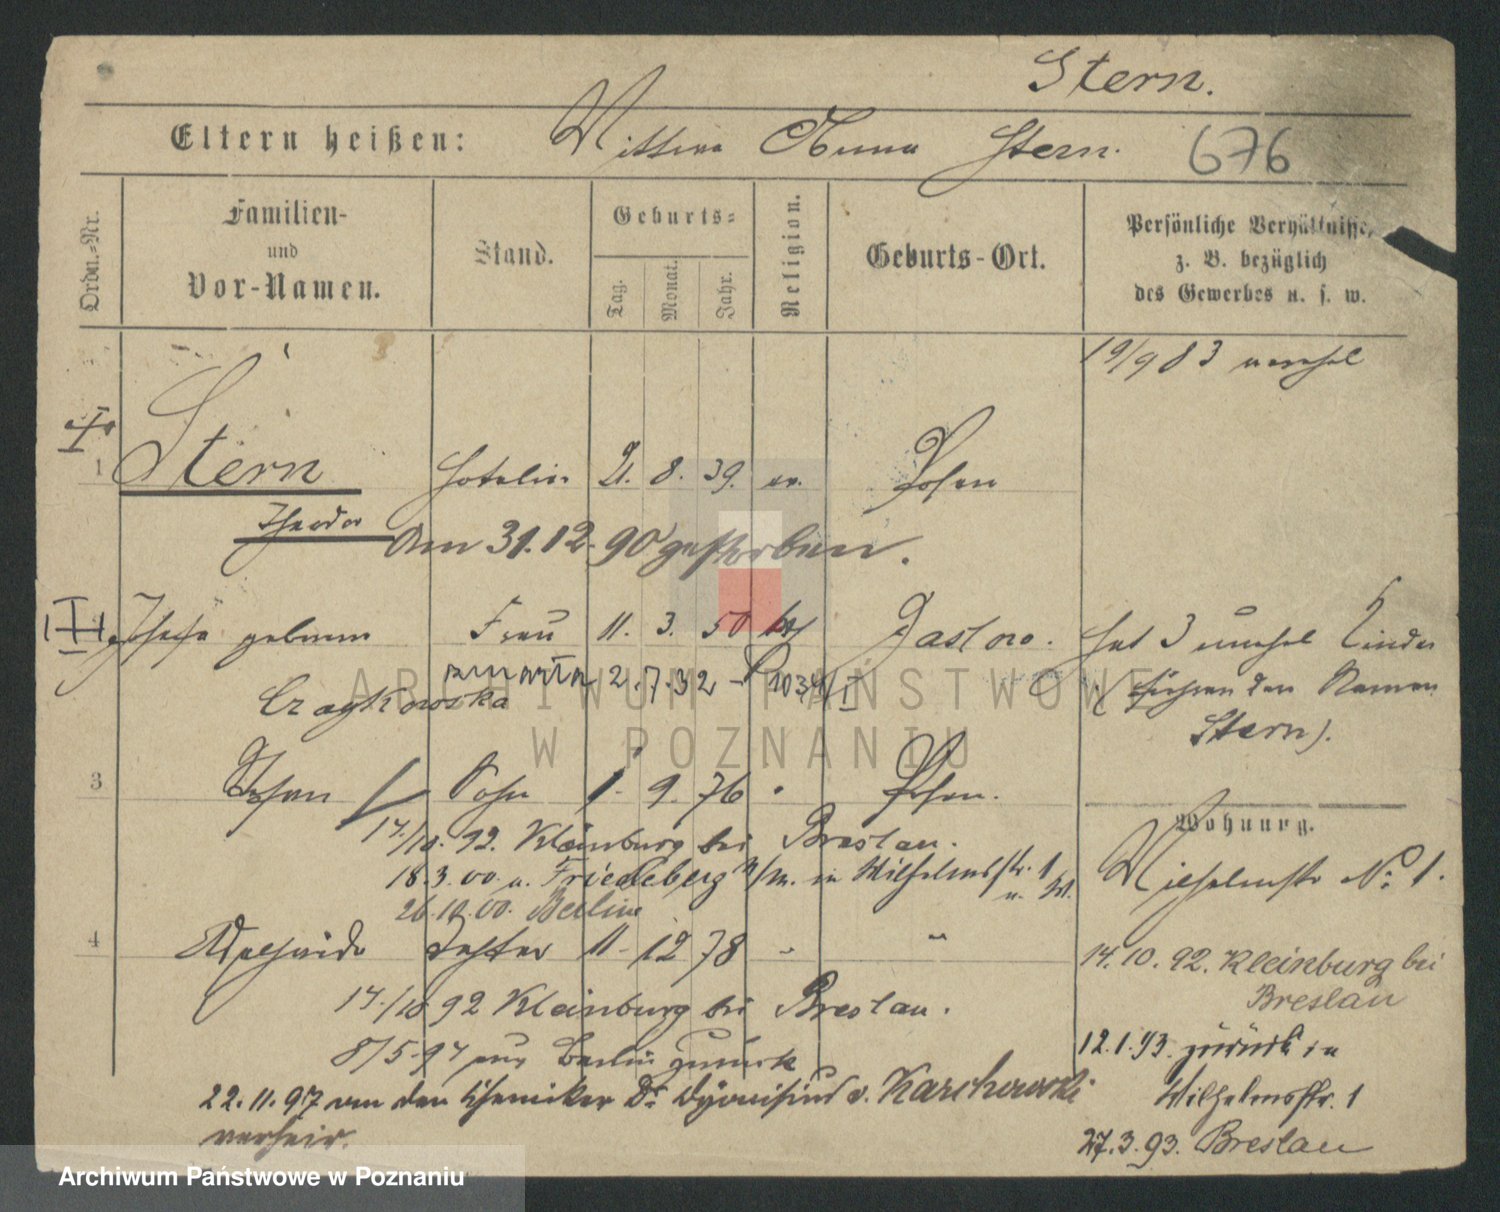 Stern.
Eltern heißen: Wittwe Anna Stern.
676
Ordn.-Nr.
Familien-
und
Vor-Namen.
Stand.
Geburts-
Tag.
Monat.
Jahr.
Religion.
Geburts-Ort.
Persönliche Verhältnisse,
z. B. bezüglich
des Gewerbes u. s. w.
19/9 83
I
1 Stern Hotelier 21. 8. 39. ev. Posen
Theodor
Am 31.12.90 gestorben.
II
Josefa geborene Frau 11. 3. 50 Gastwo. hat 3 unehel Kinder
2.7.32 (führen den Namen
Stern).
3 Johan Sohn 1. 9. 76 Posen.
Wohnung.
14./10. 92. Kleinburg bei Breslau.
Wilhelmstr No 1.
18.3.00. u. Friedeberg N/M. in Wilhelmstr. 1
26.10.00. Berlin
4 Adelheid Tochter 11 - 12 78 - "
14. 10. 92. Kleinburg bei
Breslau
14./10 92 Kleinburg bei Breslau.
12.1.93. zurück in
8/5 97 aus Berlin zurück
Wilhelmstr. 1
22.11.97 an den Chemiker Dr Dyonisius v. Karchowski
27.3.93. Breslau
verheir.
ARCHIWUM PAŃSTWOWE
W POZNANIU
Archiwum Państwowe w Poznaniu